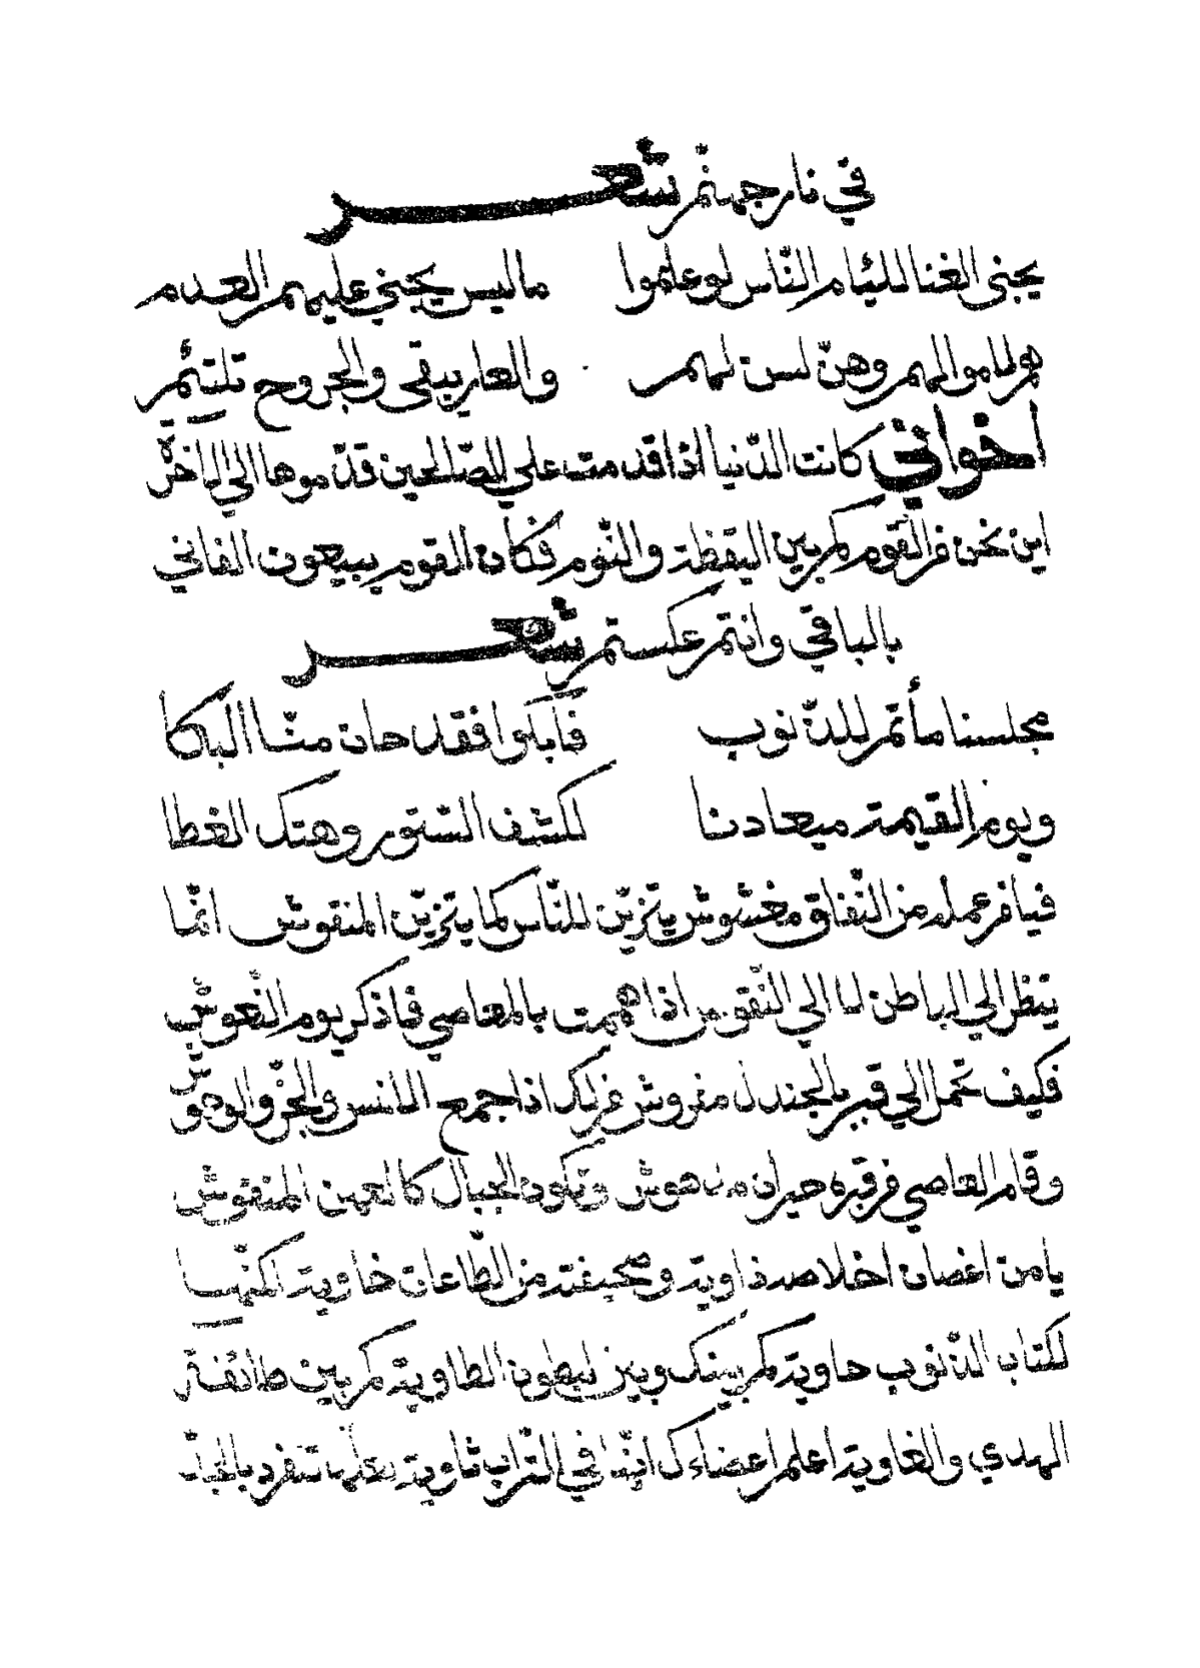 في نار جهنم شعر
يجني الغنا للئام الناس لو علموا ما ليس يجني عليهم العدم
هم لاموالهم وهن لسن لهم والعار يبقى والجروح تلتئم
اخواني كانت الدنيا اذا قدمت علي الصالحين قدموها الي الاخرة
اين نحن من القوم كم بين اليقظة والنوم فكان القوم يبيعون الفاني
بالباقي وانتم عكستم شعر
مجلسنا مأتم للذنوب فابكوا فقد حان منا البكا
ويوم القيمة ميعادنا لكشف الستور وهتك الغطا
فيا من عمله من النفاق مغشوش يتزين للناس كما يتزين المنقوش انما
ينظر الي الباطن لا الي النقوش اذا هممت بالمعاصي فاذكر يوم النعوش
فكيف تحمل الي قبر بالجندل مفروش من لك اذا جمع الانس والجن والوحوش
وقام العاصي من قبره حيران مدهوش وتكون الجبال كالعهن المنفوش
يا من اغصان اخلاصه ذاوية وصحيفته من الطاعات خاوية لكنها
لكتاب الذنوب حاوية كم بينك وبين البطون الطاوية كم بين طائفة
الهدي والغاوية اعلم اعضاءك انها في التراب ثاوية لعلها تنفرد بالجد